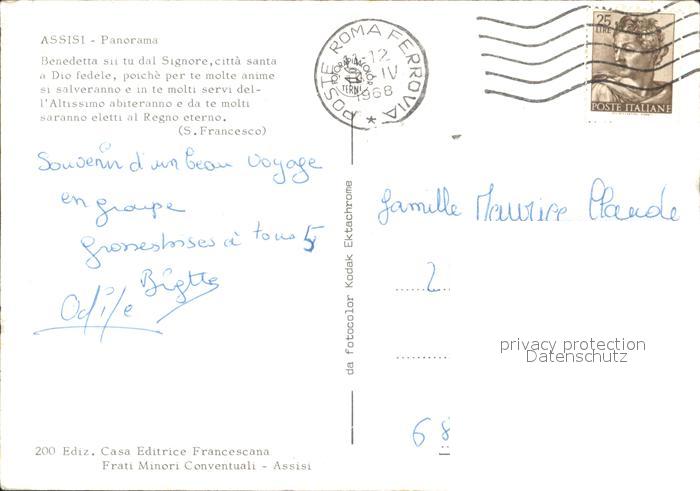 ASSISI - Panorama
Benedetta sii tu dal Signore, città santa
a Dio fedele, poichè per te molte anime
si salveranno e in te molti servi del-
l'Altissimo abiteranno e da te molti
saranno eletti al Regno eterno.
(S. Francesco)
Souvenir d'un beau voyage
en groupe
grosses bises à tous 5
Odile
200 Ediz. Casa Editrice Francescana
Frati Minori Conventuali - Assisi
da fotocolor Kodak Ektachrome
POSTE ROMA FERROVIA
-12
IV
1968
TERNI
25
LIRE
POSTE ITALIANE
famille Maurice Claude
2
68
privacy protection
Datenschutz